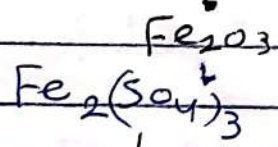 Fe₂O₃
Fe₂(SO₄)₃